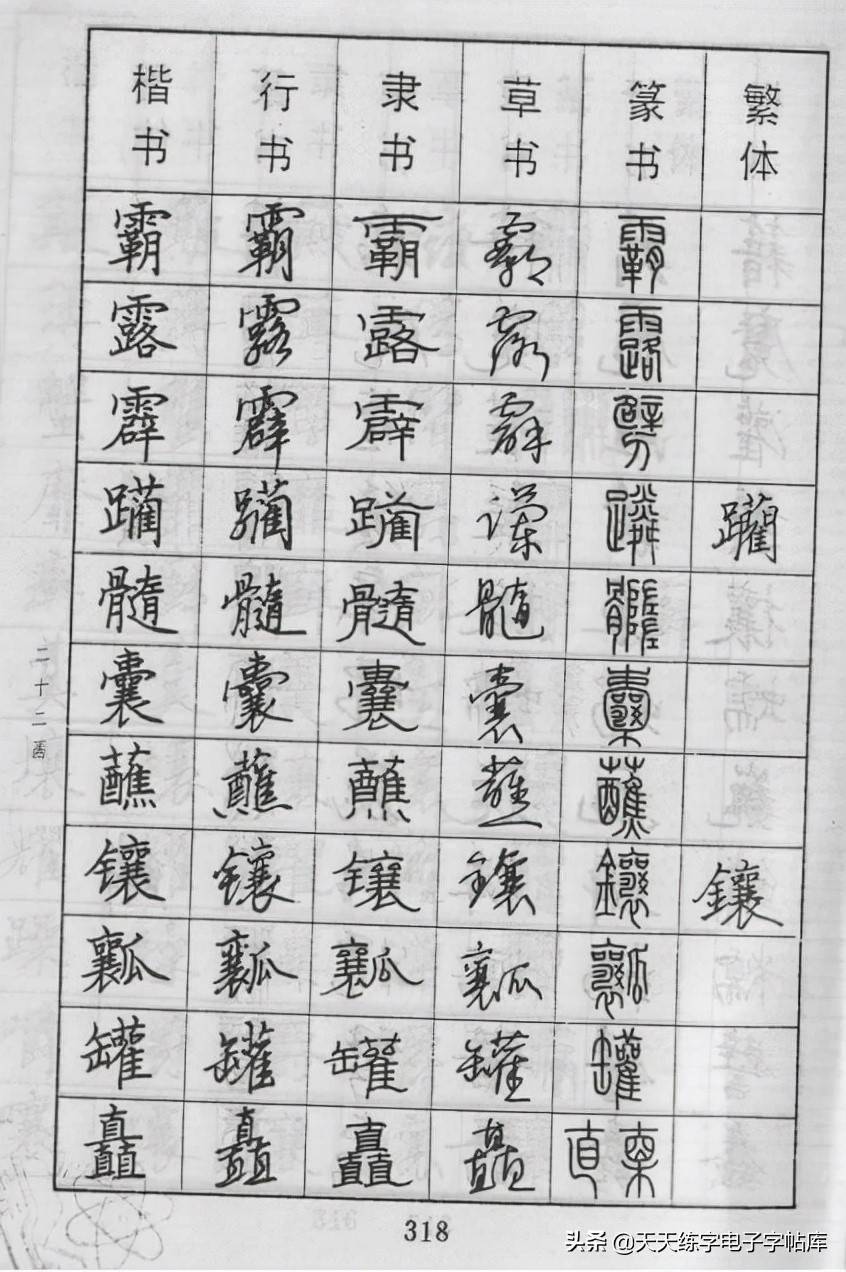 楷书 行书 隶书 草书 篆书 繁体
霸 霸 霸 霸 霸
露 露 露 露 露
霹 霹 霹 霹
躏 躏 躏 躏 躏 躪
髓 髓 髓 髓 髓
囊 囊 囊 囊 囊
蘸 蘸 蘸 蘸 蘸
镶 镶 镶 镶 鑲 鑲
瓤 瓤 瓤 瓤 瓤
罐 罐 罐 罐 罐
矗 矗 矗 矗
二十二画
318
头条 @天天练字电子字帖库